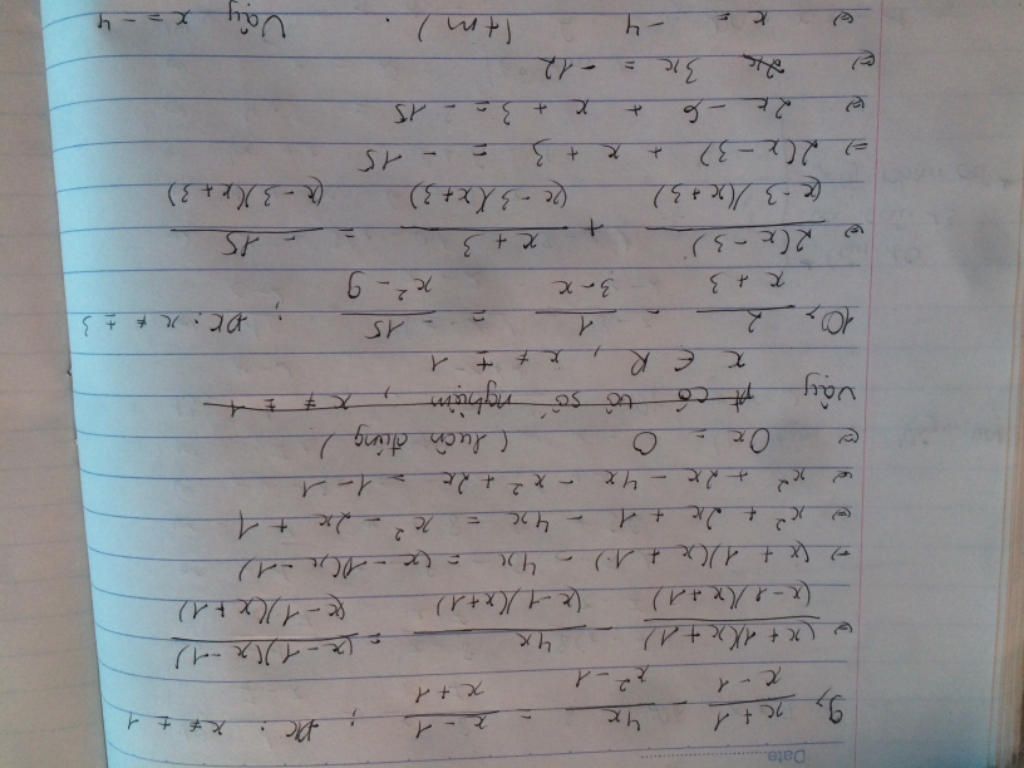 Date
9, \frac{x+1}{x-1} - \frac{4x}{x^2-1} = \frac{x-1}{x+1} ; ĐK: x ≠ ±1
⇔ \frac{(x+1)(x+1)}{(x-1)(x+1)} - \frac{4x}{(x-1)(x+1)} = \frac{(x-1)(x-1)}{(x-1)(x+1)}
⇒ (x+1)(x+1) - 4x = (x-1)(x-1)
⇔ x² + 2x + 1 - 4x = x² - 2x + 1
⇔ x² + 2x - 4x - x² + 2x = 1 - 1
⇔ 0x = 0 (luôn đúng)
Vậy pt có vô số nghiệm, x ≠ ±1
x ∈ R, x ≠ ±1
10, \frac{2}{x+3} - \frac{1}{3-x} = \frac{-15}{x^2-9} ; ĐK: x ≠ ±3
⇔ \frac{2(x-3)}{(x-3)(x+3)} + \frac{x+3}{(x-3)(x+3)} = \frac{-15}{(x-3)(x+3)}
⇒ 2(x-3) + x + 3 = -15
⇔ 2x - 6 + x + 3 = -15
⇔ 3x = -12
⇔ x = -4 (tm). Vậy x = -4